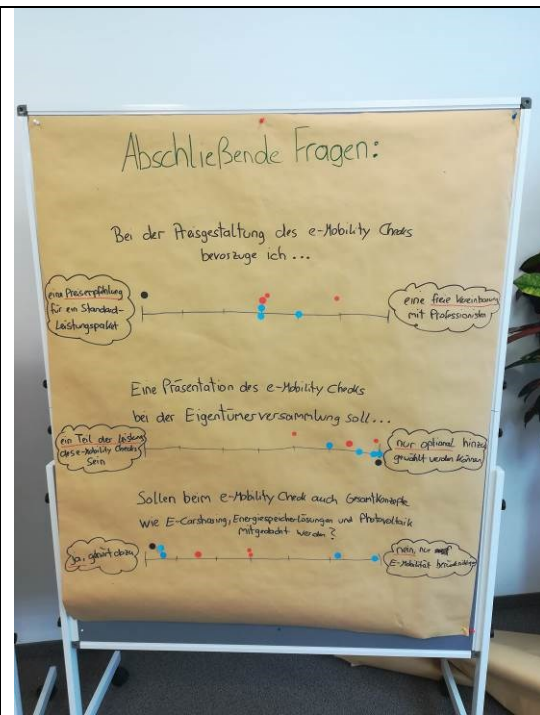 Abschließende Fragen:
Bei der Preisgestaltung des e-Mobility Checks
bevorzuge ich...
eine Preisempfehlung
für ein Standard-
Leistungspaket
eine freie Vereinbarung
mit Professionisten
Eine Präsentation des e-Mobility Checks
bei der Eigentümerversammlung soll...
ein Teil der Leistung
des e-Mobility Checks
sein
nur optional hinzu
gewählt werden können
Sollen beim e-Mobility Check auch Gesamtkonzepte
wie E-Carsharing, Energiespeicherlösungen und Photovoltaik
mitgedacht werden?
Ja, gehört dazu
nein, nur
E-Mobilität